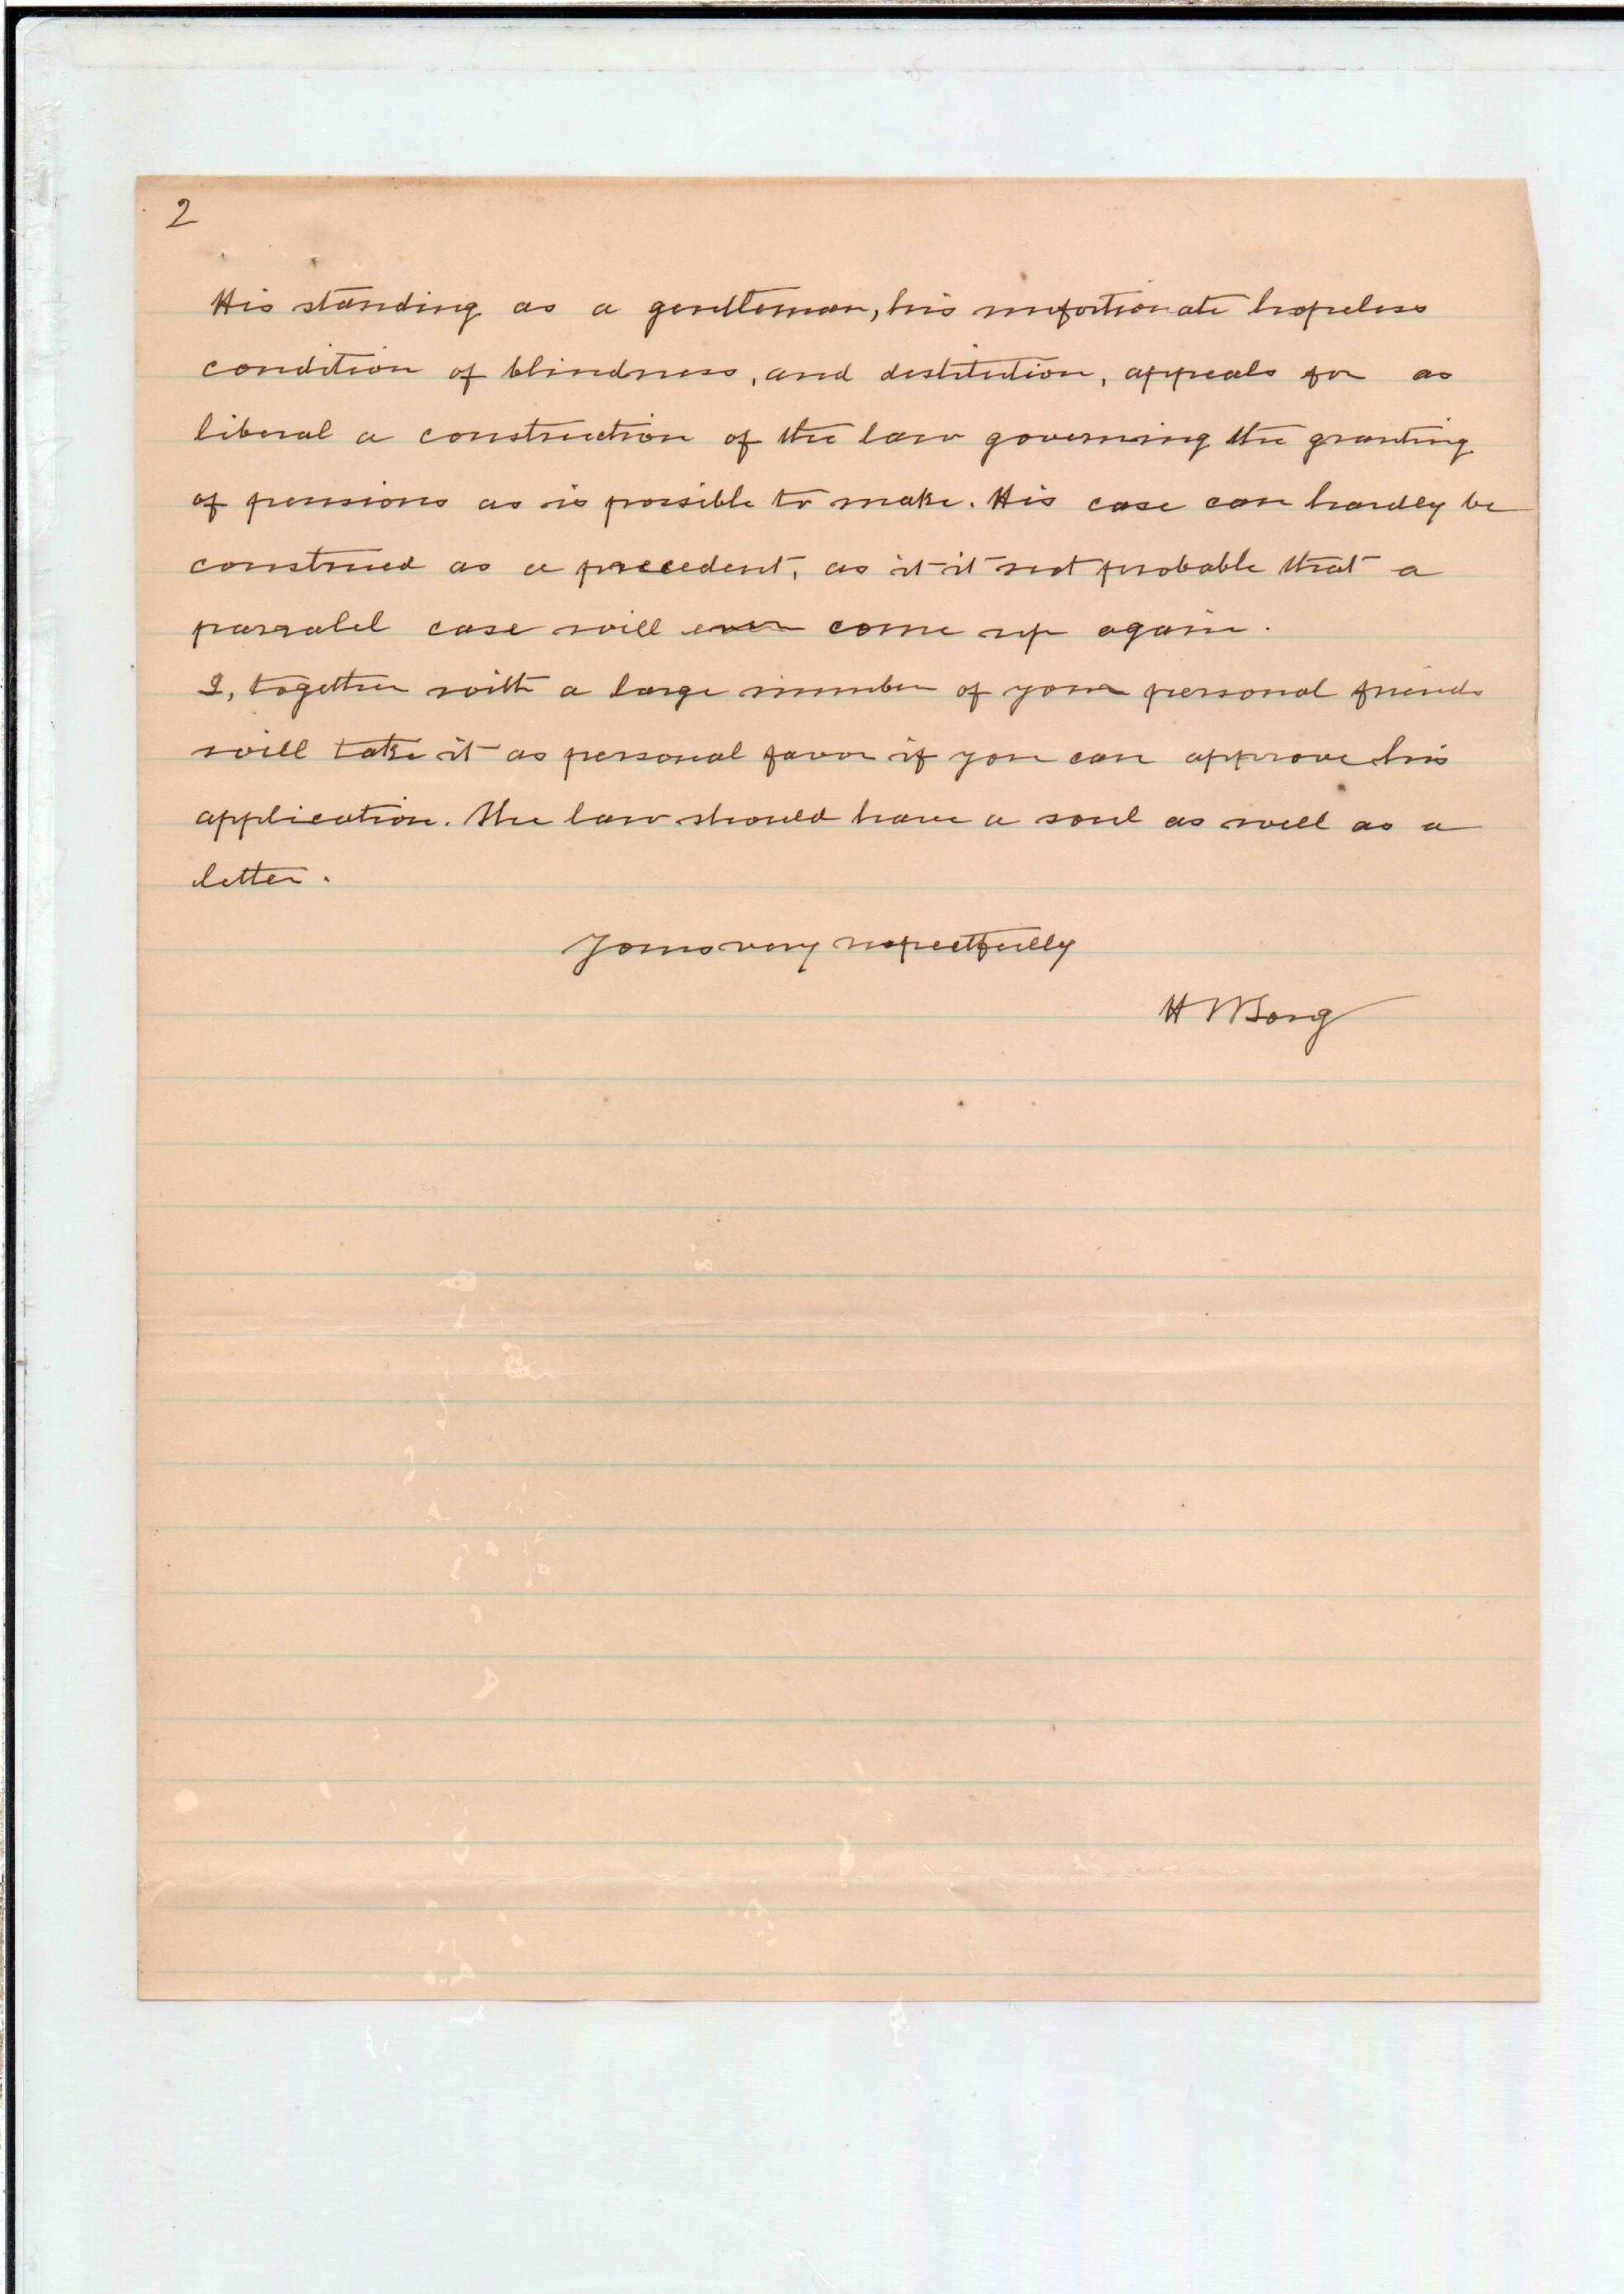 2
His standing as a gentleman, his unfortionate hopeless
condition of blindness, and destitution, appeals for as
liberal a construction of the law governing the granting
of pensions as is possible to make. His case can hardly be
construed as a precedent, as it it not probable that a
parralel case will ever come up again.
I, together with a large number of your personal friends
will take it as personal favor if you can approve his
application. The law should have a soul as well as a
letter.
Yours very respectfully
H W Long